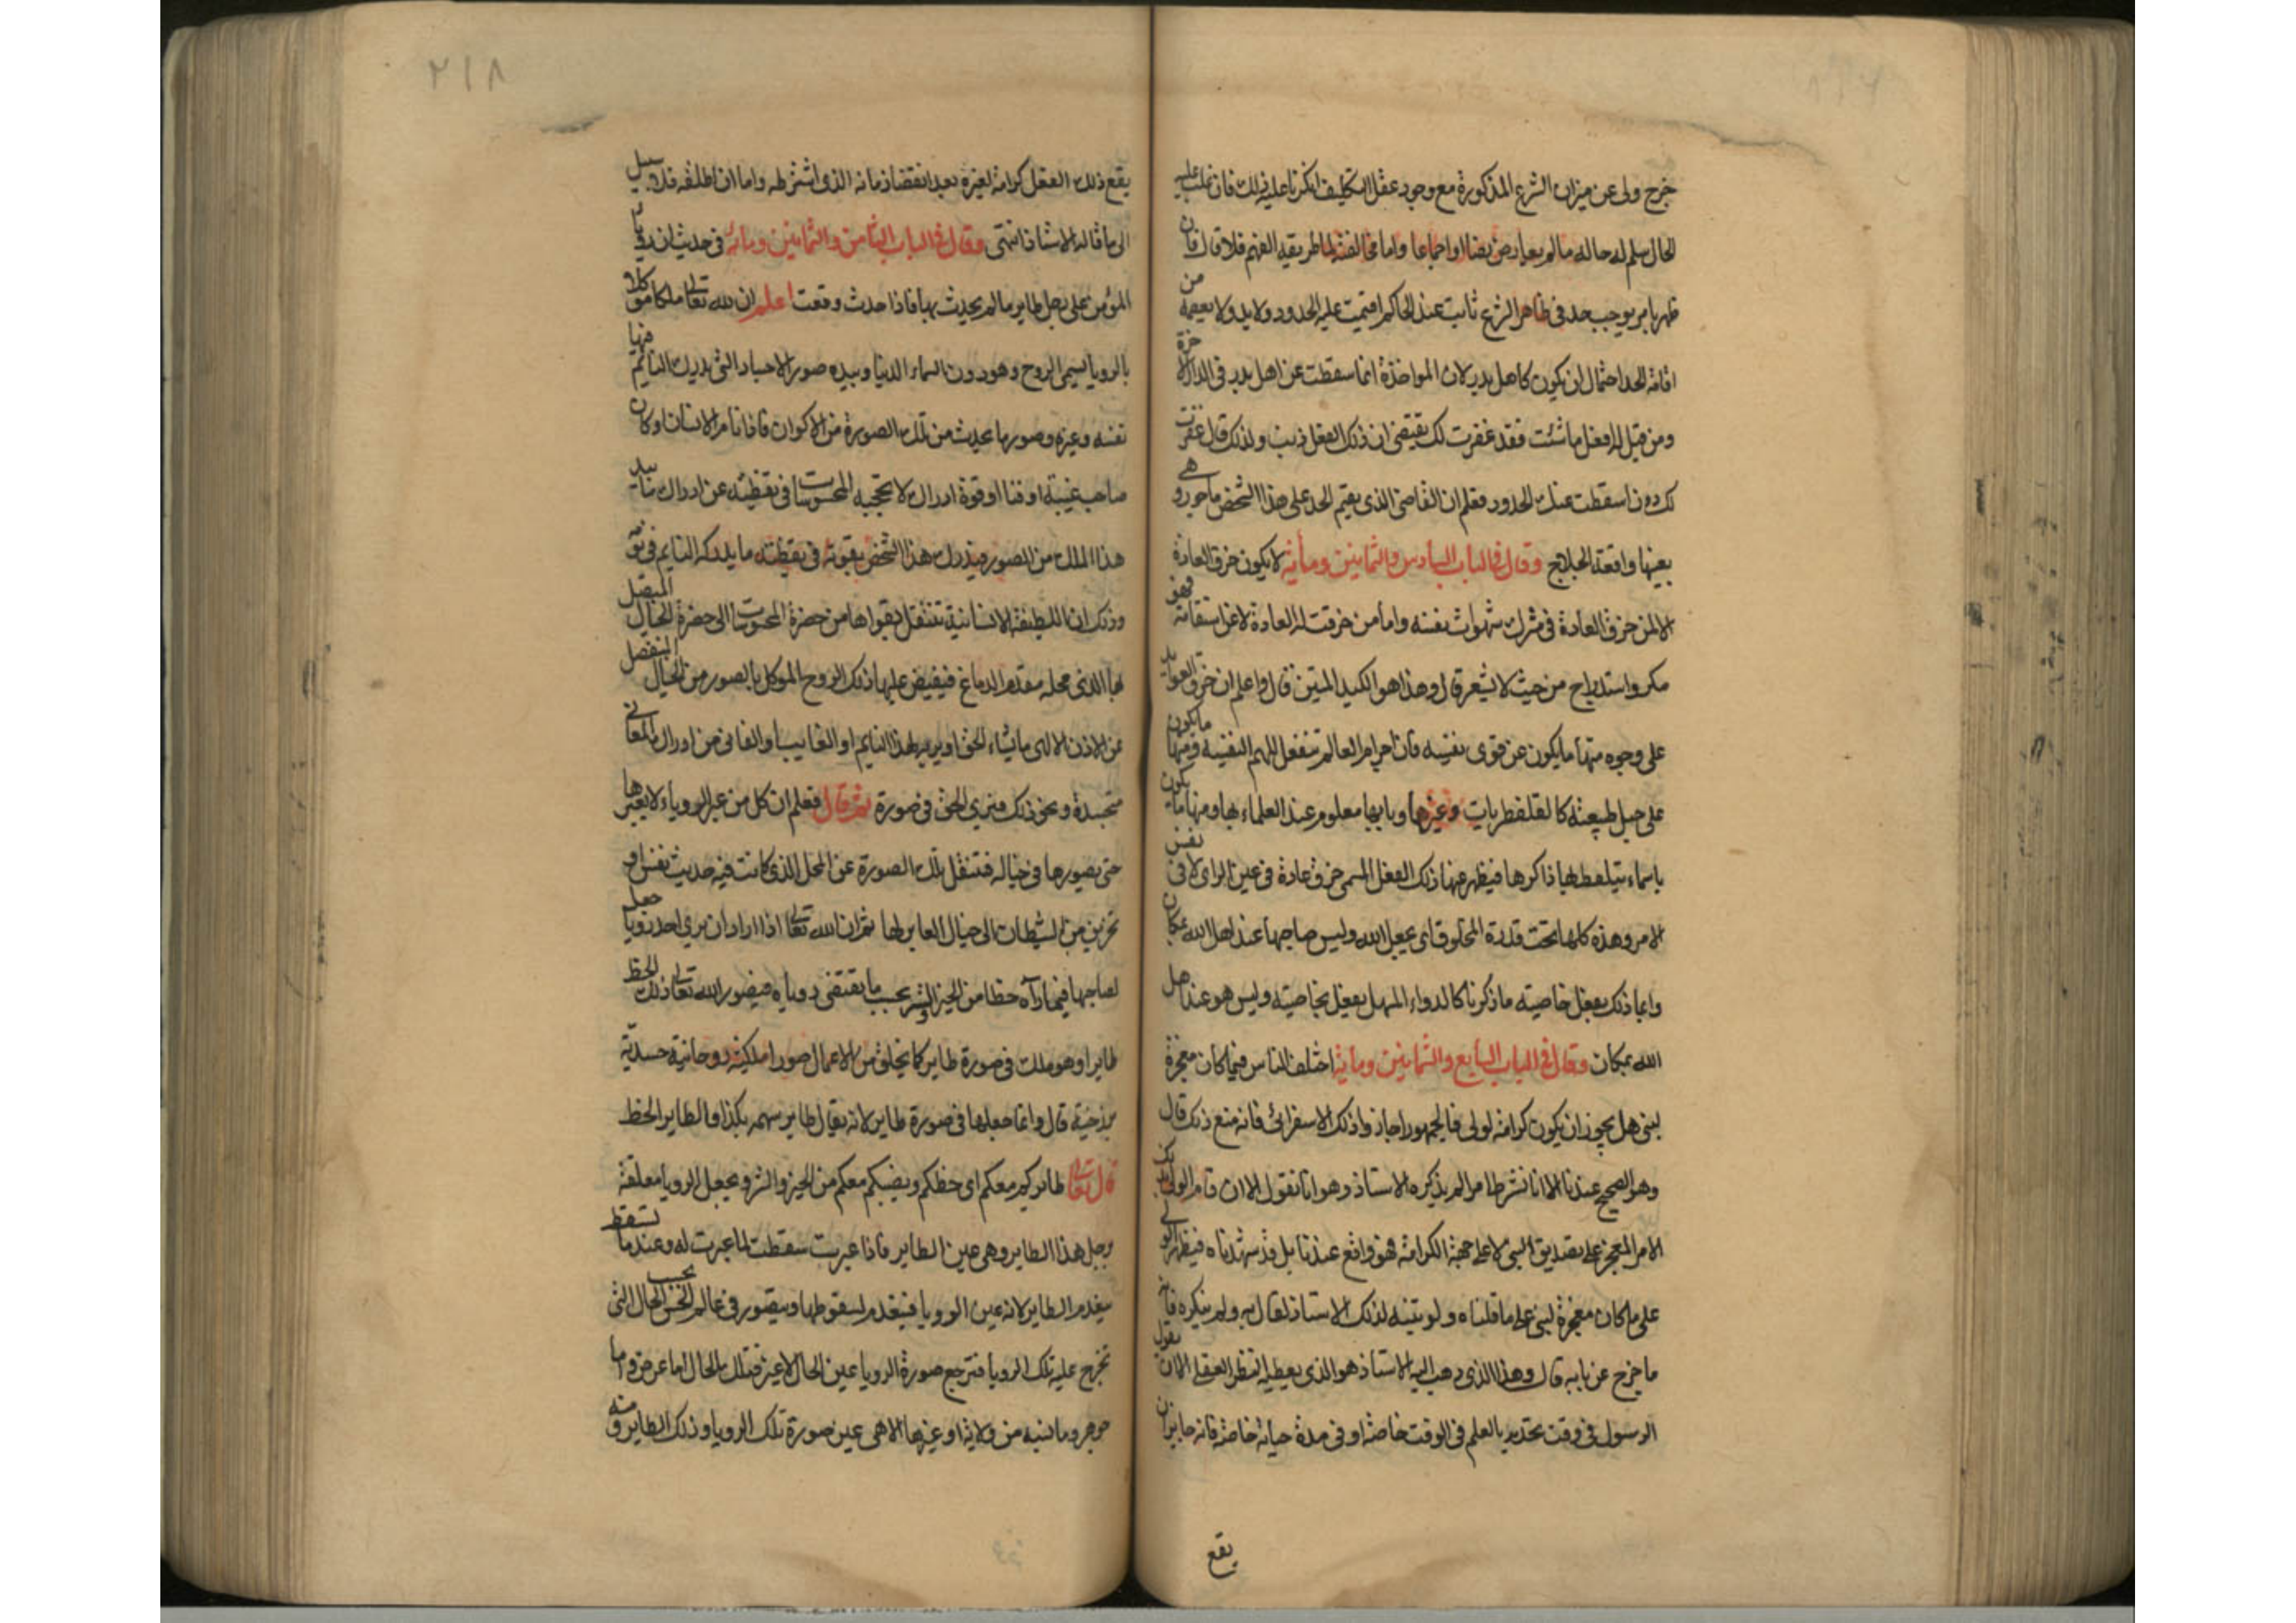 خرج ولى عن ميزان الشرع المذكورة مع وجود عقل التكليف انكرنا عليه ذلك فان غلب عليه
الحال سلم له حاله مالم يعارض نصا او اجماعا واما مخالفته لما طريقه الفهم فلا قال فان
ظهر بامر يوجب حد فى ظاهر الشرع ثابت عند الحاكم اقيمت عليه الحدود ولا بد ولا يعصمه من
اقامة الحد احتمال ان يكون كاهل بدر لان المواخذة انما سقطت عن اهل بدر فى الدار الاخرة
ومن قيل له افعل ما شئت فقد غفرت لك يقتضى ان ذلك الفعل ذنب ولذلك قال غفرت
لك دون اسقطت عنك الحدود فعلم ان القاضى الذى يقيم الحد على هذا الشخص ماجور وهى
بعينها واقعة الحلاج وقال فى الباب السادس والثمانين ومأية لا يكون خرق العادة
الا لمن خرق العادة فى ترك شهوات نفسه واما من خرقت له العادة لا عن استقامة فهو
مكر واستدراج من حيث لا يشعر قال وهذا هو الكيد المتين قال واعلم ان خرق العوايد
على وجوه منها ما يكون عن قوى نفسيه فان اجرام العالم تنفعل للهمم النفسية ومنها ما يكون
على حيل طبيعية كالقلفطريات وغيرها وبابها معلوم عند العلماء بها ومنها ما يكون
باسماء يتلفظ بها ذاكرها فيظهر عنها ذلك الفعل المسمى خرق عادة فى عين الراى لا فى نفس
الامر وهذه كلها تحت قدرة المخلوق اى بجعل الله وليس صاحبها عند اهل الله بمكان
وانما ذلك بفعل خاصية ما ذكرنا كالدواء المسهل يفعل بخاصيته وليس هو عند اهل
الله بمكان وقال فى الباب السابع والثمانين ومأية اختلف الناس فيما كان معجزة
لنبى هل يجوز ان يكون كرامة لولى فالجمهور اجازوا ذلك الا الاسفرائى فانه منع ذلك قال
وهو الصحيح عندنا الا انا نشرط امرا لم يذكره الاستاذ وهو انا نقول الا ان قام الولى بذلك
الامر المعجز على تصديق النبى لا على جهة الكرامة فهو واقع عندنا بل قد شهدناه فيظهر الولى
على ما كان معجزة لنبى على ما قلناه ولو تنبه لذلك الاستاذ لقال به ولم ينكره فانه
ما خرج عن بابه قال وهذا الذى ذهب اليه الاستاذ هو الذى يعطيه النظر العقلى الا ان يقول
الرسول فى وقت تحديه بالعلم فى الوقت خاصة او فى مدة حياته خاصة فانه جايز ان
يقع
٢١٨
يقع ذلك الفعل كرامة لغيره بعد انقضا زمانه الذى اشترطه واما ان اطلقه فلا سبيل
الى ما قاله الاستاذ انتهى وقال فى الباب الثامن والثمانين ومأية فى حديث ان رويا
المؤمن على رجل طاير مالم يحدث بها فاذا حدث وقعت اعلم ان لله تعالى ملكا موكلا
بالرويا يسمى الروح وهو دون السماء الدنيا وبيده صور الاجساد التى يدرك النايم فيها
نفسه وغيره وصور ما يحدث من تلك الصورة من الاكوان فاذا نام الانسان او كان
صاحب غيبة او فنا او قوة ادراك لا يحجبه المحسوسات فى يقظته عن ادراك ما بيد
هذا الملك من الصور فيدرك هذا الشخص بقوته فى يقظته ما يدركه النايم فى نومه
وذلك ان اللطيفة الانسانية تنتقل بقواها من حضرة المحسوسات الى حضرة الخيال المتصل
بها الذى محله مقدم الدماغ فيفيض عليها ذلك الروح الموكل بالصور من الخيال المنفصل
عن الاذن الالهى ما يشاء الحق ان يريه لهذا النايم او الغايب او الفانى من ادراك المعانى
متجسدة ونحو ذلك فيرى الحق فى صورة ثم قال فعلم ان كل من عبر الروياء لا يعبرها
حتى يصورها فى خياله فتنتقل تلك الصورة عن المحل الذى كانت فيه حديث نفس او
تحزين من الشيطان الى خيال العابر لها ثم ان الله تعالى اذا اراد ان يرى احد رويا جعل
لصاحبها فيما رآه حظا من الخير والشر بحسب ما يقتضى روياه فيصور الله تعالى ذلك الحظ
طايرا وهو ملك فى صورة طاير كما يخلق من الاعمال صورا ملكية روحانية جسدية
برزخية قال وانما جعلها فى صورة طاير لانه يقال طاير سهمه بكذا والطاير الحظ
قال تعالى طايركم معكم اى حظكم ونصيبكم معكم من الخير والشر ويجعل الرويا معلقة
برجل هذا الطاير وهى عين الطاير فاذا عبرت سقطت لما عبرت له وعند ما تسقط
ينعدم الطاير لانه عين الرويا فينعدم لسقوطها ويتصور فى عالم الحس بحسب الحال التى
تخرج عليه تلك الرويا فترجع صورة الرويا عين الحال لا غير فتلك الحال اما عرض واما
جوهر واما نسبة من ولاية او غيرها الا هى عين صورة تلك الرويا وذلك الطاير ومنه